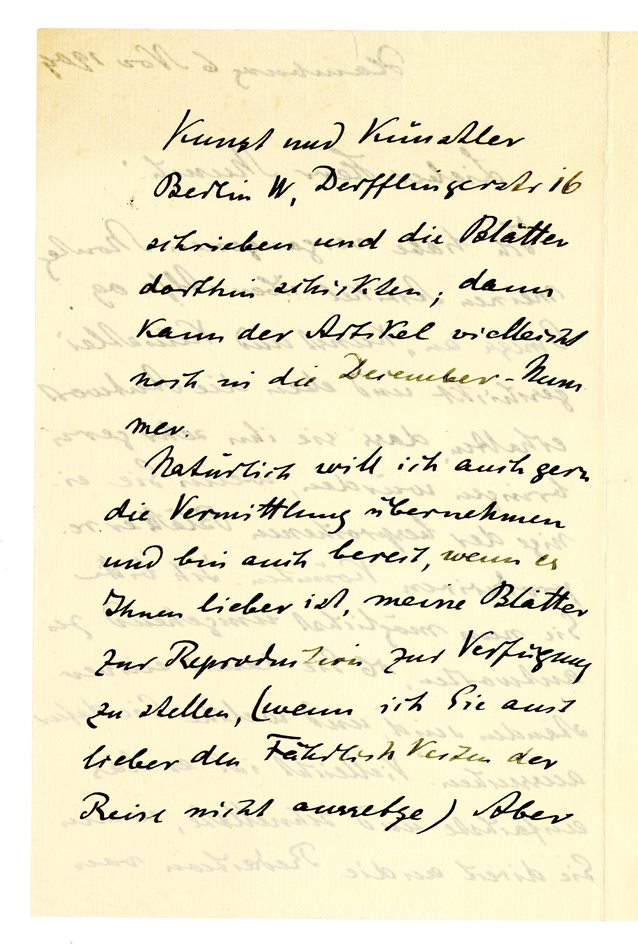 Kunst und Künstler
Berlin W, Derfflingerstr 16
schrieben und die Blätter
dorthin schickten, dann
kann der Artikel vielleicht
noch in die December-Num
mer.
Natürlich will ich auch gern
die Vermittlung übernehmen
und bin auch bereit, wenn es
Ihnen lieber ist, meine Blätter
zur Reproduction zur Verfügung
zu stellen, (wenn ich Sie auch
lieber den der
Reise nicht aussetze) Aber